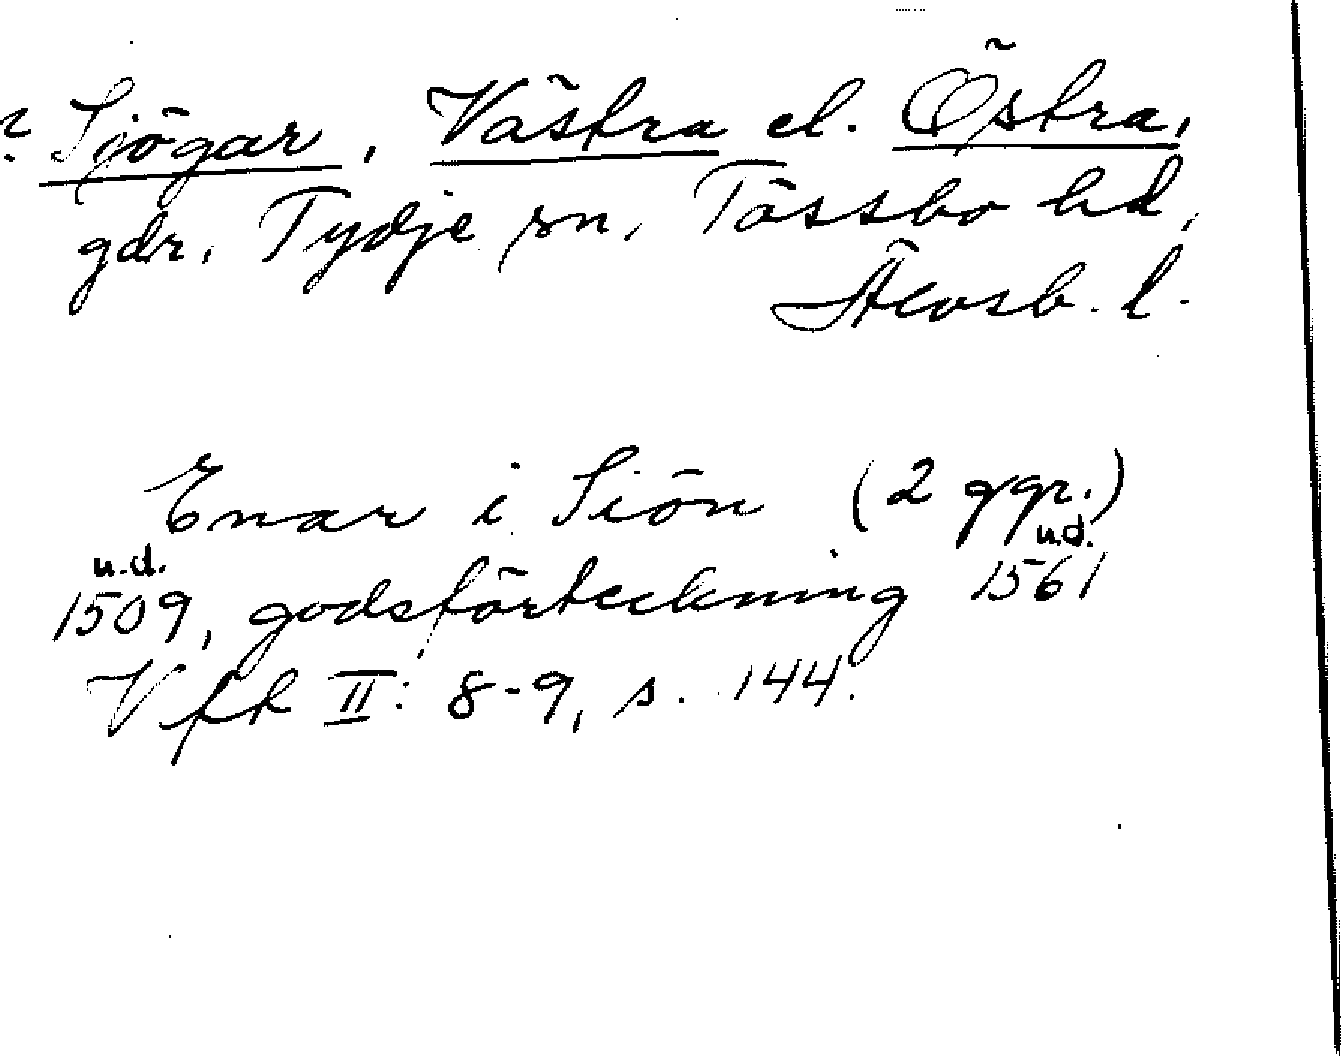 ? Sjögar, Västra el. Östra,
gdr, Tydje sn, Tössbo hd,
Älvsb. l.
Enar i Siön (2 ggr.)
u.d. u.d.
1509, godsförteckning 1561
Vfh II: 8-9, s. 144.